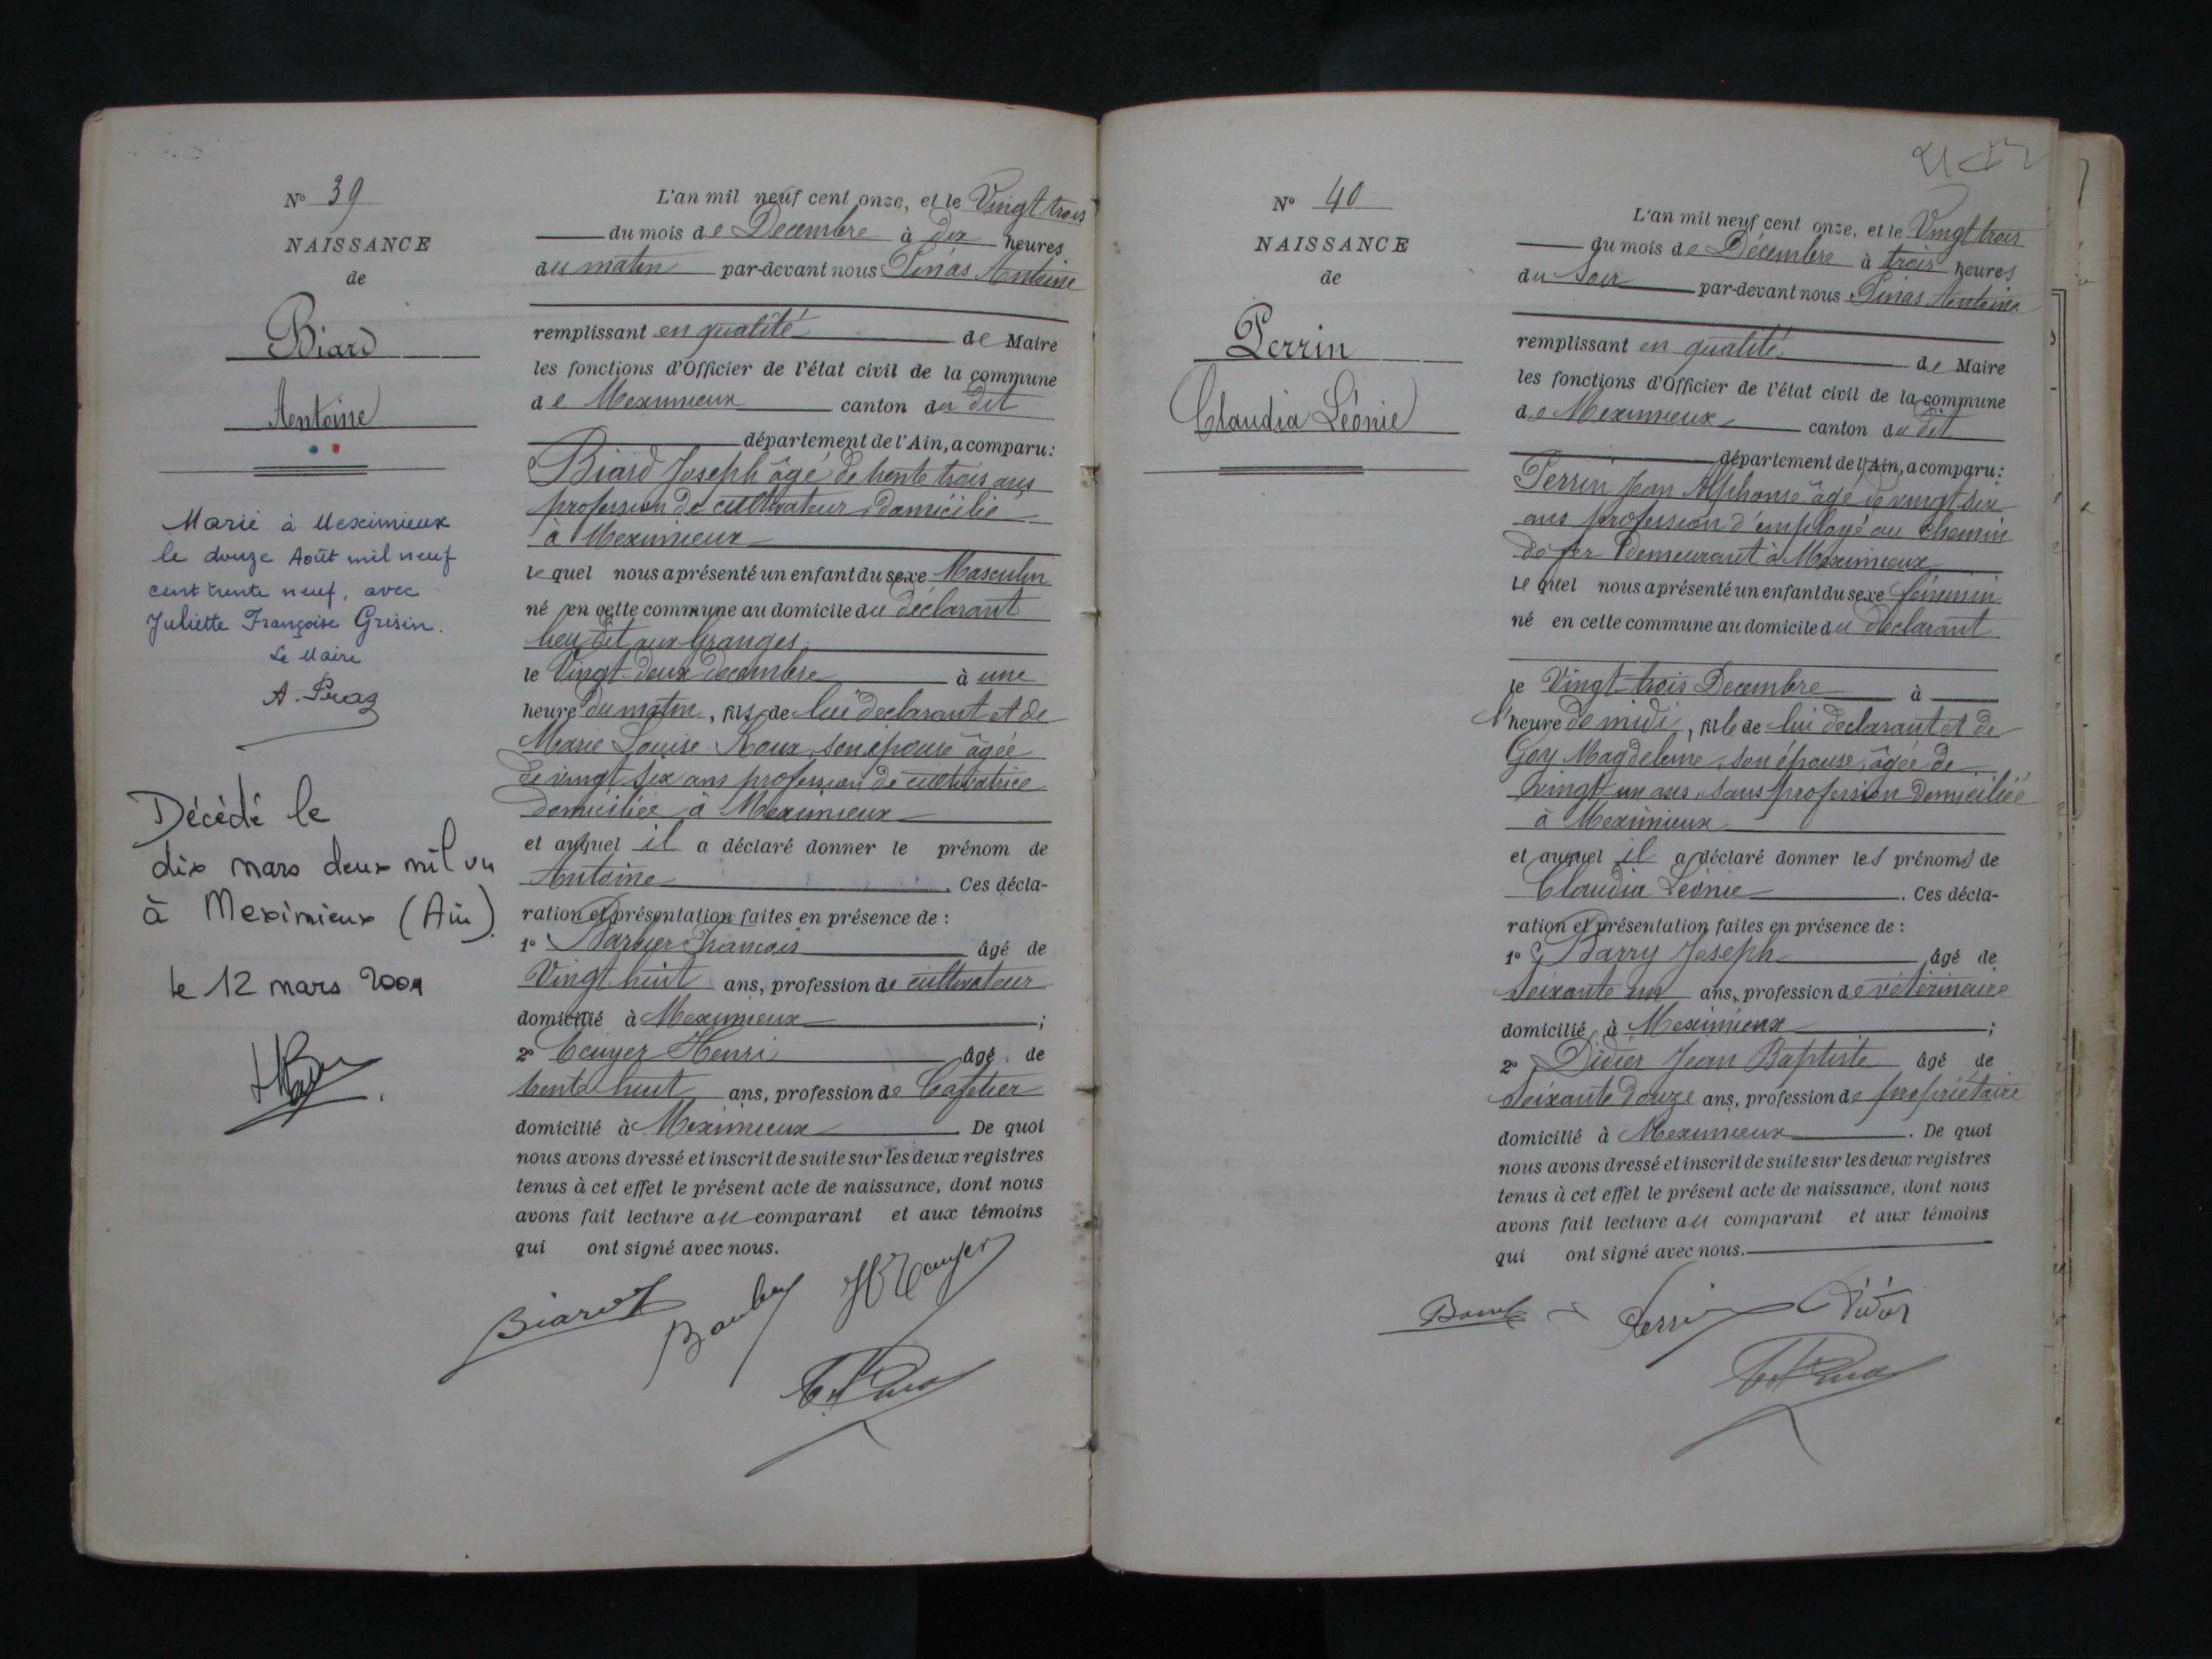 N° 39
NAISSANCE
de
Biard
Antoine
Marié à Meximieux
le douze Août mil neuf
cent trente neuf, avec
Juliette Françoise Grisin.
Le Maire
Décédé le
dix mars deux mil un
à Meximieux (Ain).
le 12 mars 2001
L'an mil neuf cent onze, et le Vingt trois
du mois de Decembre à dix heures
du matin par-devant nous Antoine
remplissant en qualité de Maire
les fonctions d'Officier de l'état civil de la commune
de Meximieux canton du dit
département de l'Ain, a comparu:
Biard Joseph âgé de trente trois ans
profession de cultivateur domicilié
à Meximieux
le quel nous a présenté un enfant du sexe Masculin
né en cette commune au domicile du déclarant
lieu dit aux Granges
le Vingt-deux decembre à une
heure du matin, fils de lui declarant et de
Marie Louise Roux son épouse âgée
de vingt six ans profession de cultivatrice
domiciliée à Meximieux
et auquel il a déclaré donner le prénom de
Antoine. Ces décla-
ration et présentation faites en présence de :
1° Barbier Francois âgé de
Vingt huit ans, profession de cultivateur
domicilié à Meximieux ;
2° Ecuyer Henri âgé de
trente huit ans, profession de Cafetier
domicilié à Meximieux De quoi
nous avons dressé et inscrit de suite sur les deux registres
tenus à cet effet le présent acte de naissance, dont nous
avons fait lecture au comparant et aux témoins
qui ont signé avec nous.
Biard
N° 40
NAISSANCE
de
Perrin
Claudia Léonie
L'an mil neuf cent onze, et le Vingt trois
du mois de Décembre à trois heures
du soir par-devant nous Antoine
remplissant en qualité de Maire
les fonctions d'Officier de l'état civil de la commune
de Meximieux canton du dit
département de l'Ain, a comparu:
Perrin Jean Alphonse âgé de vingt six
ans profession d'employé au chemin
de fer demeurant à Meximieux
le quel nous a présenté un enfant du sexe féminin
né en cette commune au domicile du déclarant
le Vingt-trois Decembre à
l'heure de midi, fille de lui declarant et de
Goy Magdeleine, son épouse, âgée de
vingt un ans, sans profession domiciliée
à Meximieux
et auquel il a déclaré donner les prénoms de
Claudia Léonie. Ces décla-
ration et présentation faites en présence de :
1° Barry Joseph âgé de
soixante un ans, profession de vétérinaire
domicilié à Meximieux ;
2° Didier Jean Baptiste âgé de
soixante douze ans, profession de propriétaire
domicilié à Meximieux. De quoi
nous avons dressé et inscrit de suite sur les deux registres
tenus à cet effet le présent acte de naissance, dont nous
avons fait lecture au comparant et aux témoins
qui ont signé avec nous.
Perrin Didier